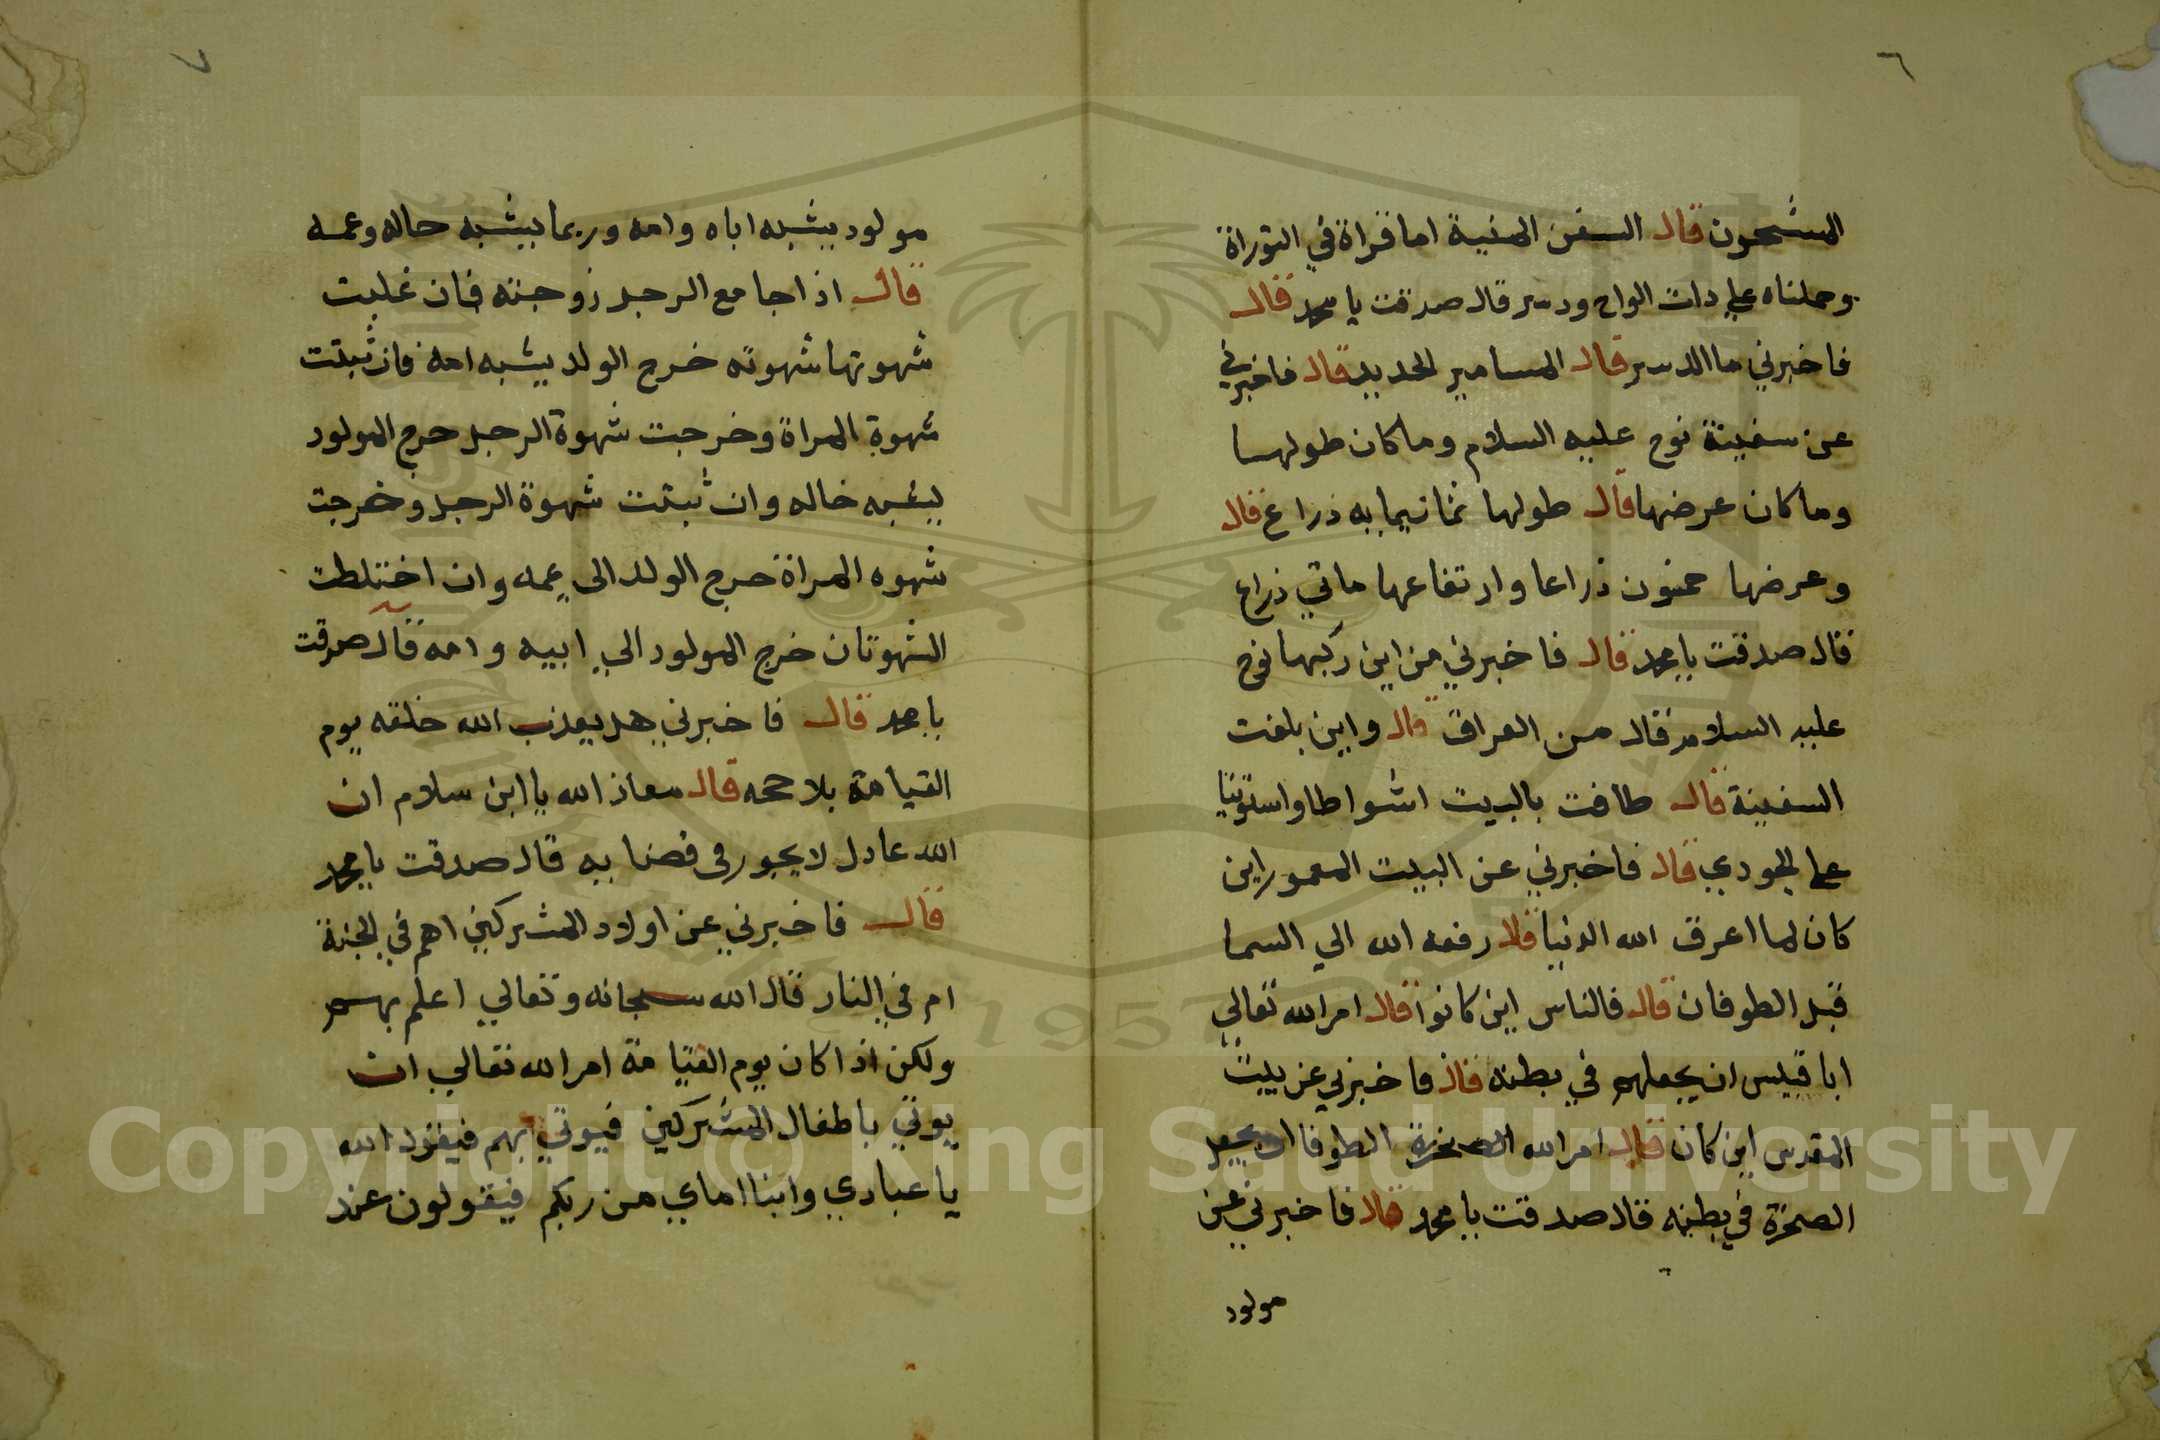 ٦
المشحون قال السفن المنية اما قراة في التوراة
وحملناه علي دات الواح ودسر قال صدقت يا محمد قال
فاخبرني ما الدسر قال المسامير الحديد قال فاخبرني
عن سفينة نوح عليه السلام وما كان طولها
وما كان عرضها قال طولها ثمانيمايه ذراع قال
وعرضها خمنون ذراعا وارتفاعها ماتي ذراع
قال صدقت يا محمد قال فاخبرني من اين ركبها نوح
عليه السلام قال من العراق قال واين بلغت
السفينة قال طافت بالبيت اشواطا واستوت
علي الجودي قال فاخبرني عن البيت المعمور اين
كان لما اعرق الله الدنيا قال رفعه الله الي السما
قبل الطوفان قال فالناس اين كانوا قال امر الله تعالي
ابا قبيس ان يجعلهم في بطنه قال فاخبرني عن بيت
المقدس اين كان قال امر الله الصخرة الطوفا ان يجعل
الصخرة في بطنه قال صدقت يا محمد قال فاخبرني عن
مولود
٧
مولود يشبه اباه وامه وربما يشبه حاله وعمه
قال اذا جامع الرجل زوجته فان غلبت
شهوتها شهوته خرج الولد يشبه امه فان ثبتت
شهوة المراة وخرجت شهوة الرجل خرج المولود
يشبه خاله وان ثبتت شهوة الرجل وخرجت
شهوه المراة خرج الولد الى عمه وان اختلطت
الشهوتان خرج المولود الي ابيه وامه قال صدقت
يا محمد قال فاخبرني هل يعذب الله خلقه يوم
القيامة بلا حجه قال معاذ الله يا ابن سلام ان
الله عادل لا يجور في قضايه قال صدقت يا محمد
قال فاخبرني عن اولاد المشركين اهم في الجنة
ام في النار قال الله سبحانه وتعالي اعلم بهم
ولكن اذا كان يوم القيامة امر الله تعالي ان
يوتي باطفال المشركين فيوتي بهم فيقول الله
يا عبادي وابنا اماي من ربكم فيقولون عند
1957
Copyright © King Saud University